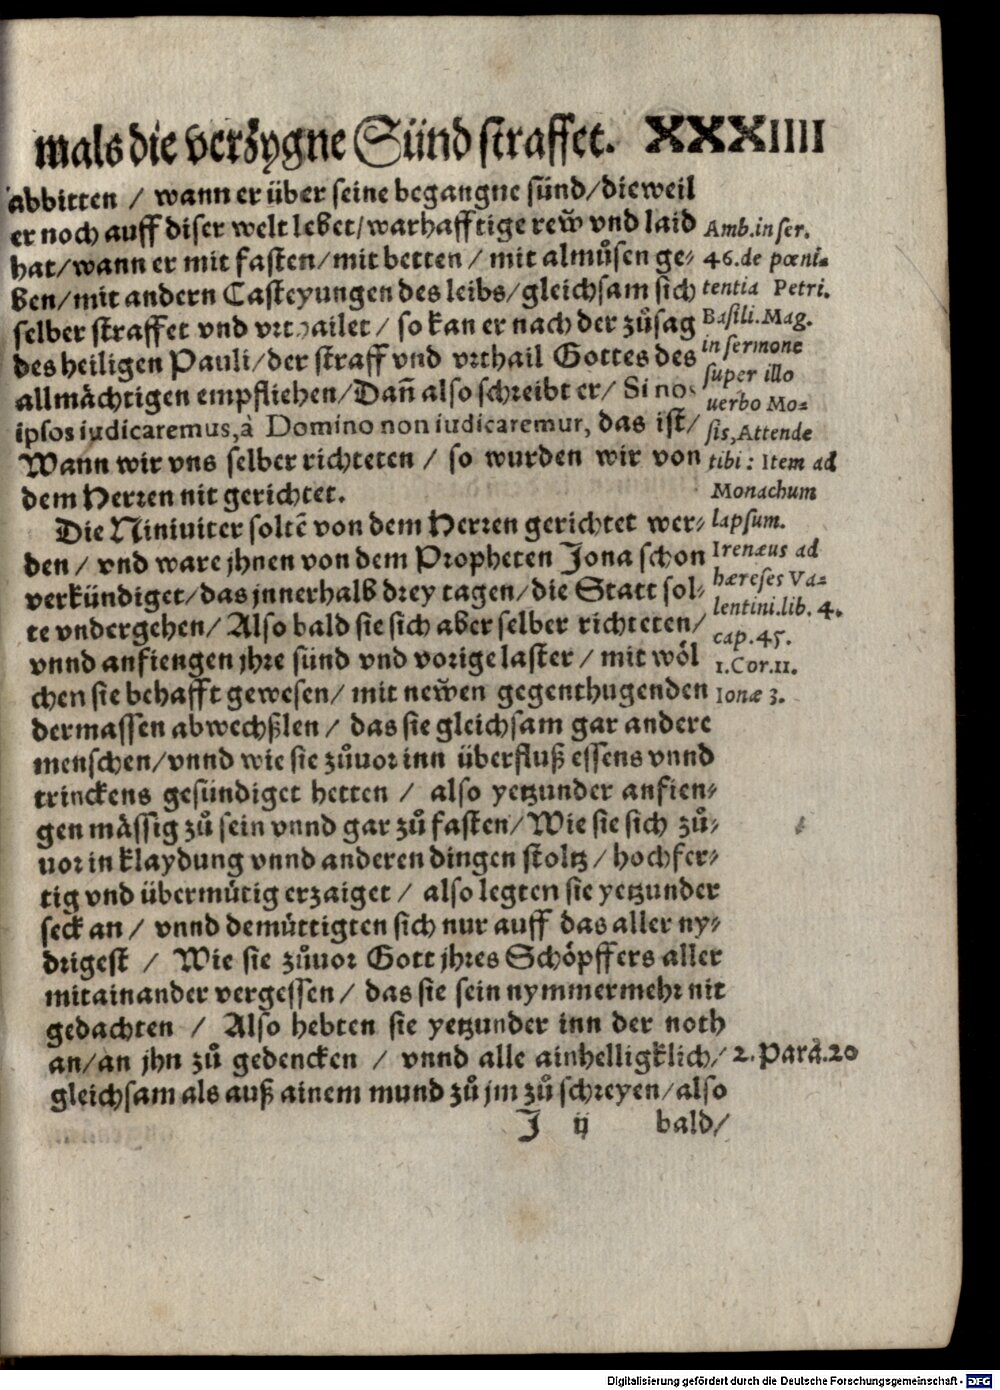 mals die verzygne Sünd straffet. XXXIIII
abbitten / wann er über seine begangne sünd/dieweil
er noch auff diser welt lebet/warhafftige rew̃ vnd laid
hat/wann er mit fasten/mit betten / mit almůsen ge-
ben/mit andern Casteyungen des leibs/gleichsam sich
selber straffet vnd vrthailet / so kan er nach der zůsag
des heiligen Pauli/der straff vnd vrthail Gottes des
allmächtigen empfliehen/Dañ also schreibt er/ Si nos
ipsos iudicaremus, à Domino non iudicaremur, das ist/
Wann wir vns selber richteten / so wurden wir von
dem Herren nit gerichtet.
Die Niniuiter soltẽ von dem Herren gerichtet wer-
den / vnd ware jhnen von dem Propheten Jona schon
verkündiget/das jnnerhalb drey tagen/die Statt sol-
te vndergehen/ Also bald sie sich aber selber richteten/
vnnd anfiengen jhre sünd vnd vorige laster / mit wöl
chen sie behafft gewesen/ mit new̃en gegenthugenden
dermassen abwechßlen / das sie gleichsam gar andere
menschen/vnnd wie sie zůuor inn überfluß essens vnnd
trinckens gesündiget hetten / also yetzunder anfien-
gen mässig zů sein vnnd gar zů fasten/Wie sie sich zů-
uor in klaydung vnnd anderen dingen stoltz / hochfer-
tig vnd übermůtig erzaiget / also legten sie yetzunder
seck an / vnnd demůttigten sich nur auff das aller ny-
drigest / Wie sie zůuor Gott jhres Schöpffers aller
mitainander vergessen / das sie sein nymmermehr nit
gedachten / Also hebten sie yetzunder inn der noth
an/an jhn zů gedencken / vnnd alle ainhelligklich/
gleichsam als auß ainem mund zů jm zů schreyen/also
J ij bald/
Amb.in ser.
46.de pœni-
tentia Petri.
Basili.Mag.
in sermone
super illo
uerbo Mo-
sis,Attende
tibi : Item ad
Monachum
lapsum.
Irenæus ad
hæreses Va-
lentini.lib. 4.
cap.45.
1.Cor.11.
Ionæ 3.
2. Para.20
Digitalisierung gefördert durch die Deutsche Forschungsgemeinschaft - DFG